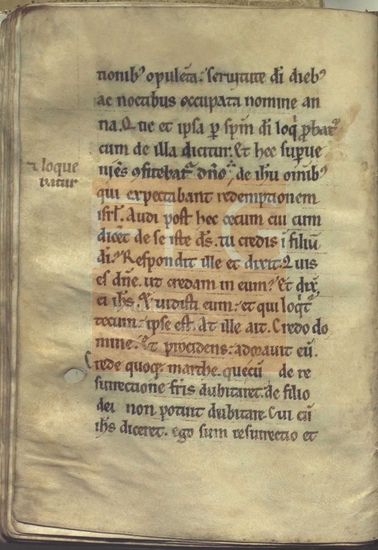 tionib' opulēta. seruitute dī dieb'
ac noctibus occupata nomine an
na. Que et ipsa p spm dī loq̄ p̄bat'
cum de illa dicitur. Et hec supue
niēs ɔfitebat' dn̄o. de ihū oīnib'
⁊ loque
batur
qui expectabant redemptionem
isrl. Audi post hec cecum cui cum
dicēt de se iste d̄s. tu credis ī filiū
dī. Respondit ille et dixit. Quis
es dn̄e. ut credam in eum. Et dix̄
ei ihs. Et uidisti eum. et qui loqt'
tecum. ipse est. At ille ait. Credo do
mine. Et procidens. adorauit eū.
Crede quoq; marthe. que cū de re
surrectione fr̄is dubitaret. de filio
dei non potuit dubitare. Cui cū
ihs diceret. ego sum resurrectio et